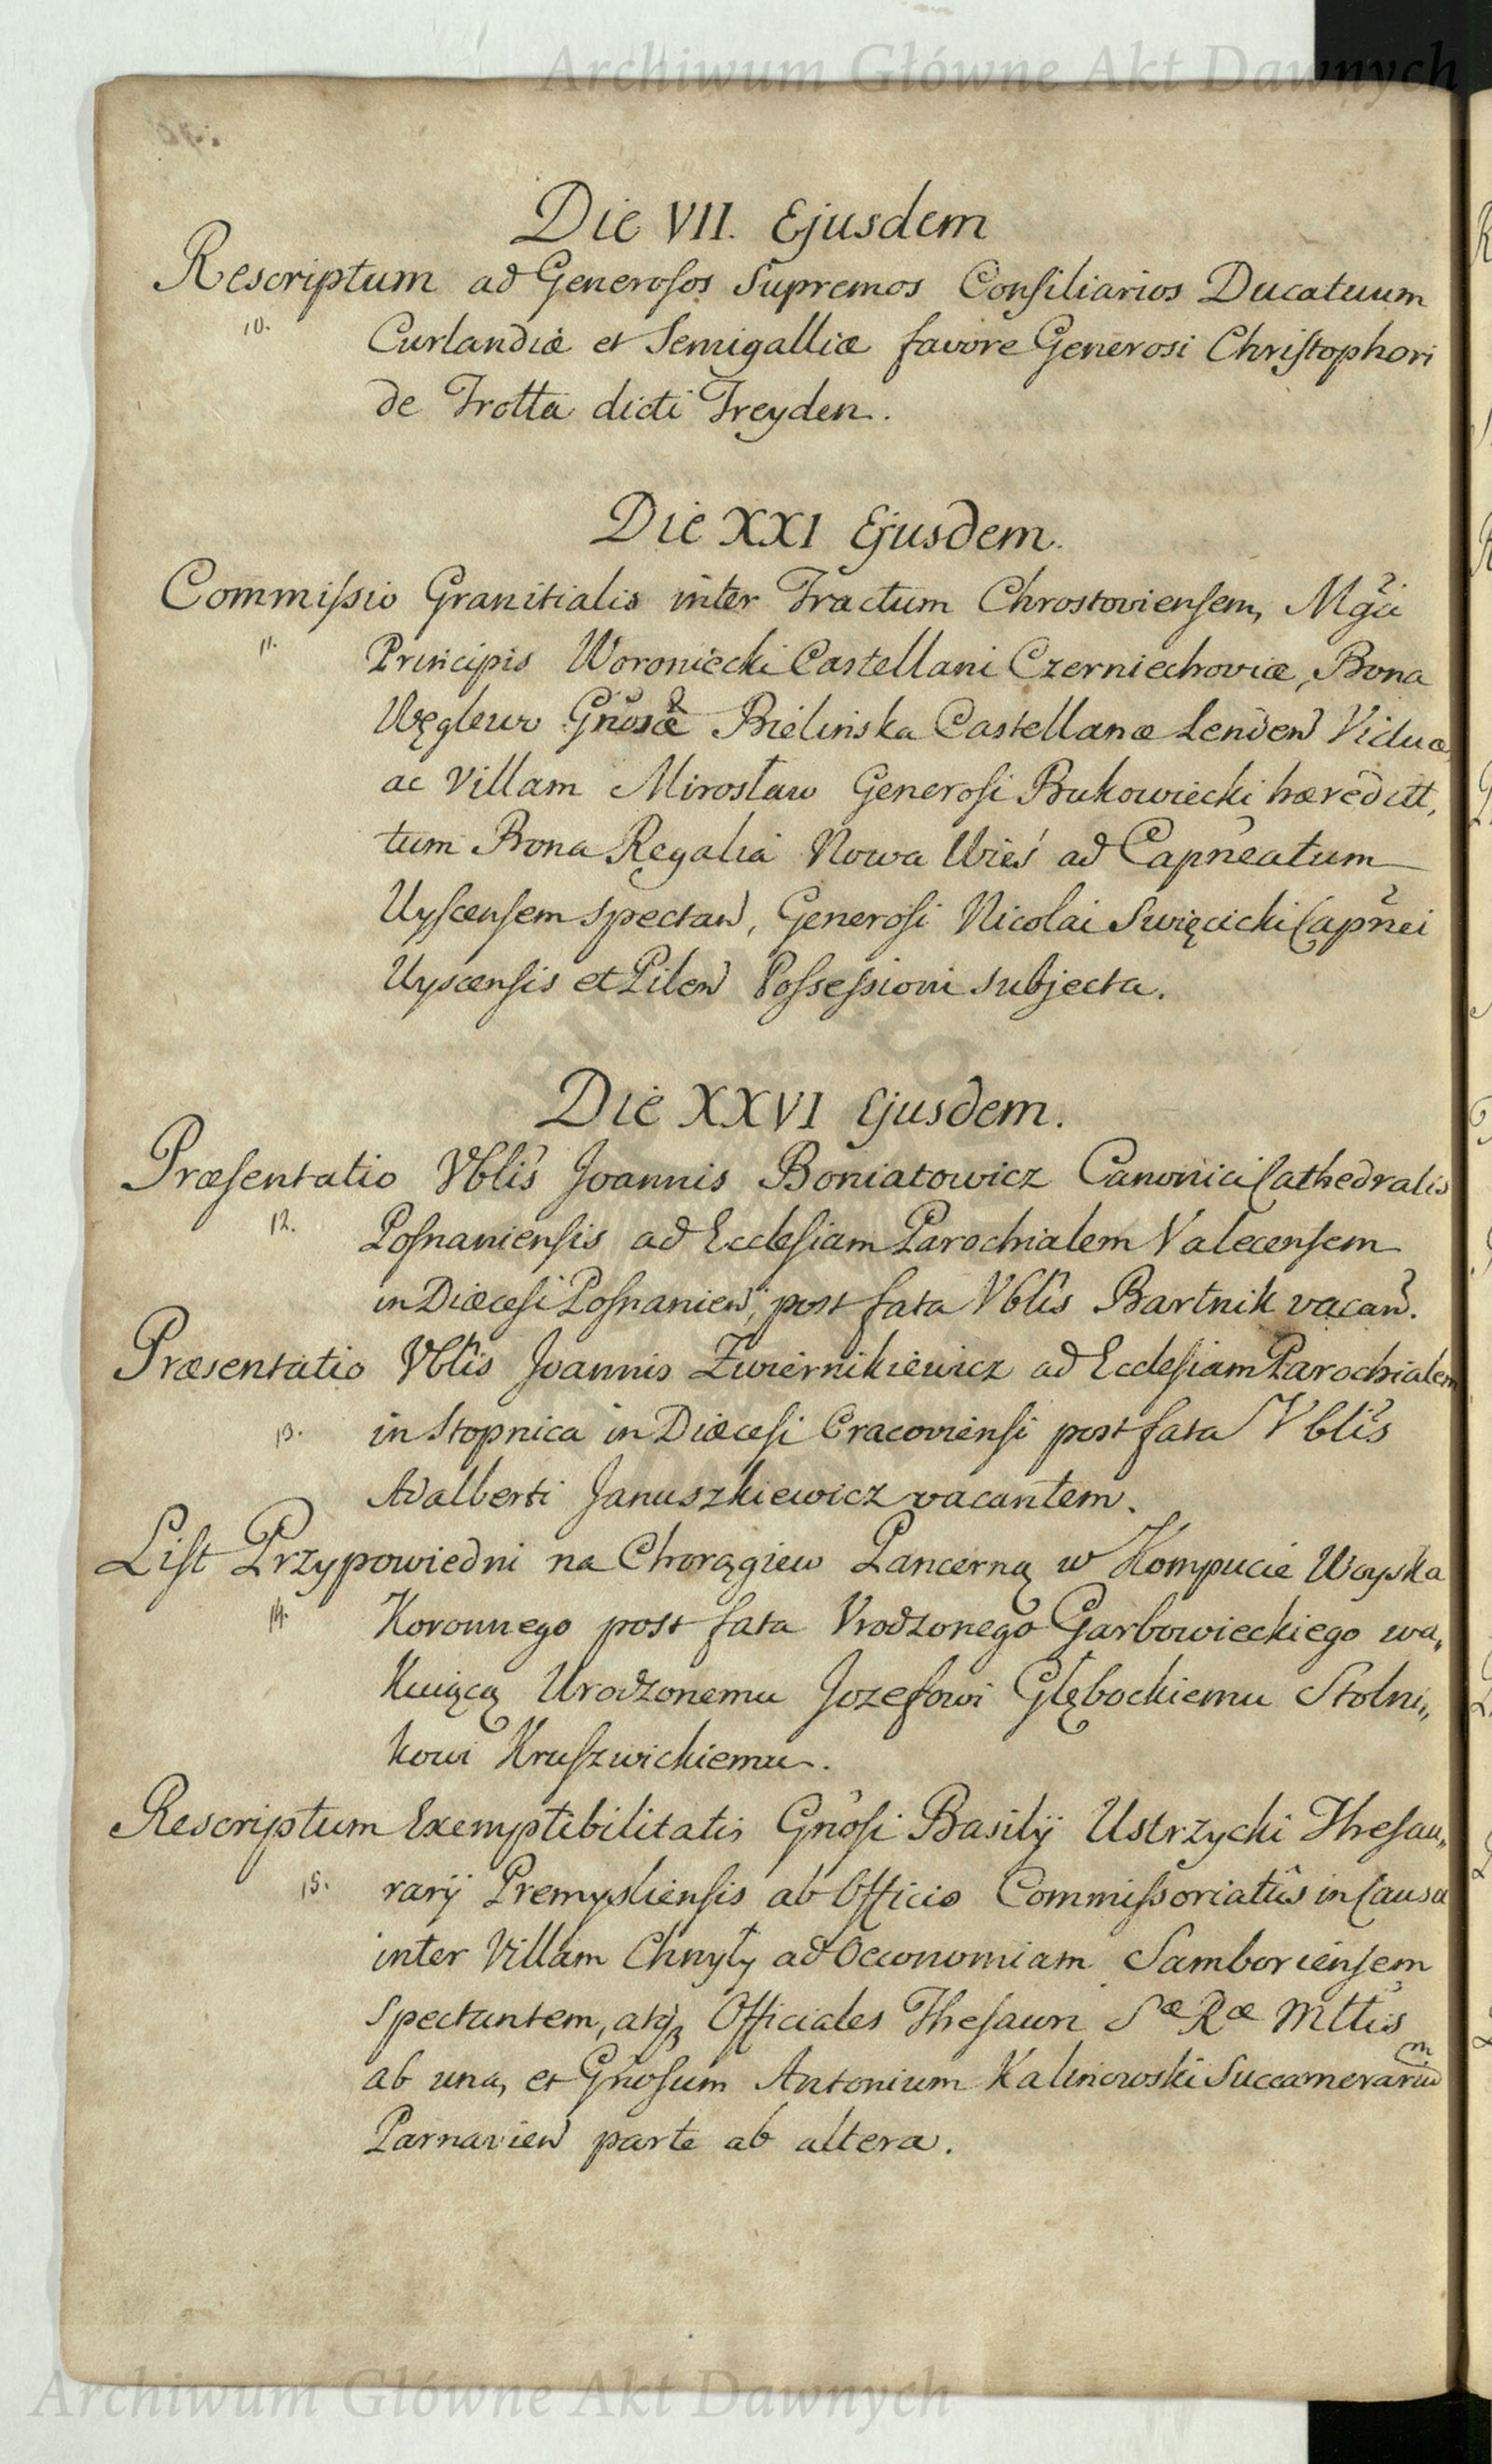 Archiwum Główne Akt Dawnych
Die VII. Ejusdem
Rescriptum ad Generosos Supremos Consiliarios Ducatuum
10.
Curlandiæ et Semigalliæ favore Generosi Christophori
de Trotta dicti Treyden.
Die XXI Ejusdem.
Commissio Granitialis inter Tractum Chrostoviensem, Mgci
11.
Principis Woroniecki Castellani Czerniechoviæ, Bona
Węglewo Gnosæ Bielinska Castellanæ Lenden Viduæ
ac Villam Mirosław Generosi Bukowiecki hæreditt,
tum Bona Regalia Nowa Wieś ad Capneatum
Uyscensem spectan, Generosi Nicolai Swięcicki Capnei
Uyscensis et Pilen Possessioni subjecta.
Die XXVI Ejusdem.
Præsentatio Vblis Joannis Boniatowicz Canonici Cathedralis
12.
Posnaniensis ad Ecclesiam Parochialem Valecensem
in Diæcesi Posnanien, post fata Vblis Bartnik vacan.
Præsentatio Vblis Joannis Zwiernikiewicz ad Ecclesiam Parochialem
13.
in Stopnica in Diæcesi Cracoviensi post fata Vblis
Adalberti Januszkiewicz vacantem.
List Przypowiedni na Chorągiew Pancerną w Kompucie Woyska
14.
Koronnego post fata Vrodzonego Garbowieckiego wa,,
kuiącą Urodzonemu Jozefowi Głębockiemu Stolni,,
kowi Kruszwickiemu.
Rescriptum Exemptibilitatis Gnosi Basilij Ustrzycki Thesau,,
15.
rarij Premysliensis ab Officio Commissoriatûs in Causa
inter Villam Chnyły ad Oeconomiam Samboriensem
spectantem, atq3 Officiales Thesauri Sæ Ræ Mttis
ab una, et Gnosum Antonium Kalinowski Succamerarium
Parnavien parte ab altera.
Archiwum Główne Akt Dawnych